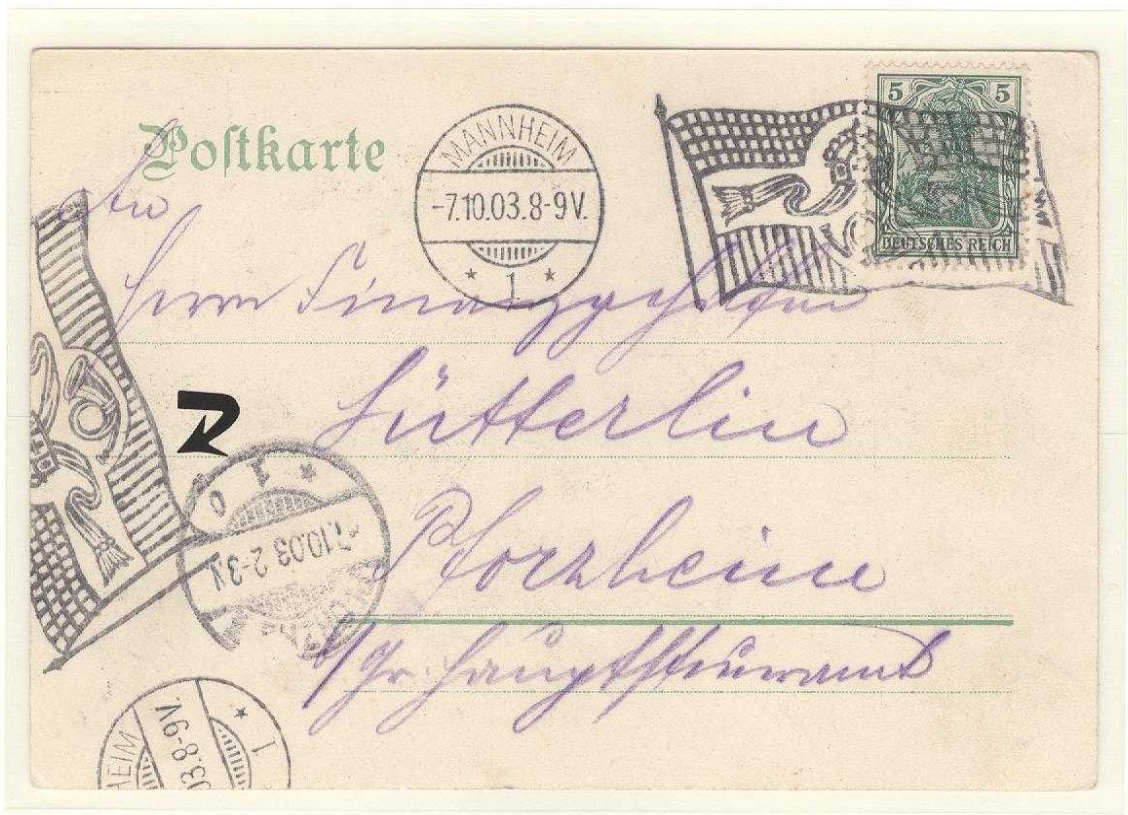 Postkarte
MANNHEIM
-7.10.03.8-9V.
* 1 *
5 5
DEUTSCHES REICH
An
Herrn Finanzgehilfen
Sütterlin
Pforzheim
Gr. Hauptsteueramt
* 1 0
7.10.03 2-3N
HEIM
03.8-9V.
* 1